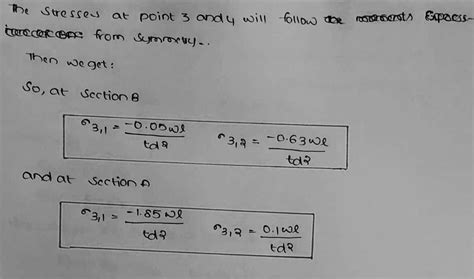 The stresses at point 3 and 4 will follow
from symmetry..
Then we get:
So, at section B
σ3,1 = -0.05wl/td² σ3,2 = -0.63wl/td²
and at section A
σ3,1 = -1.85wl/td² σ3,2 = 0.1wl/td²